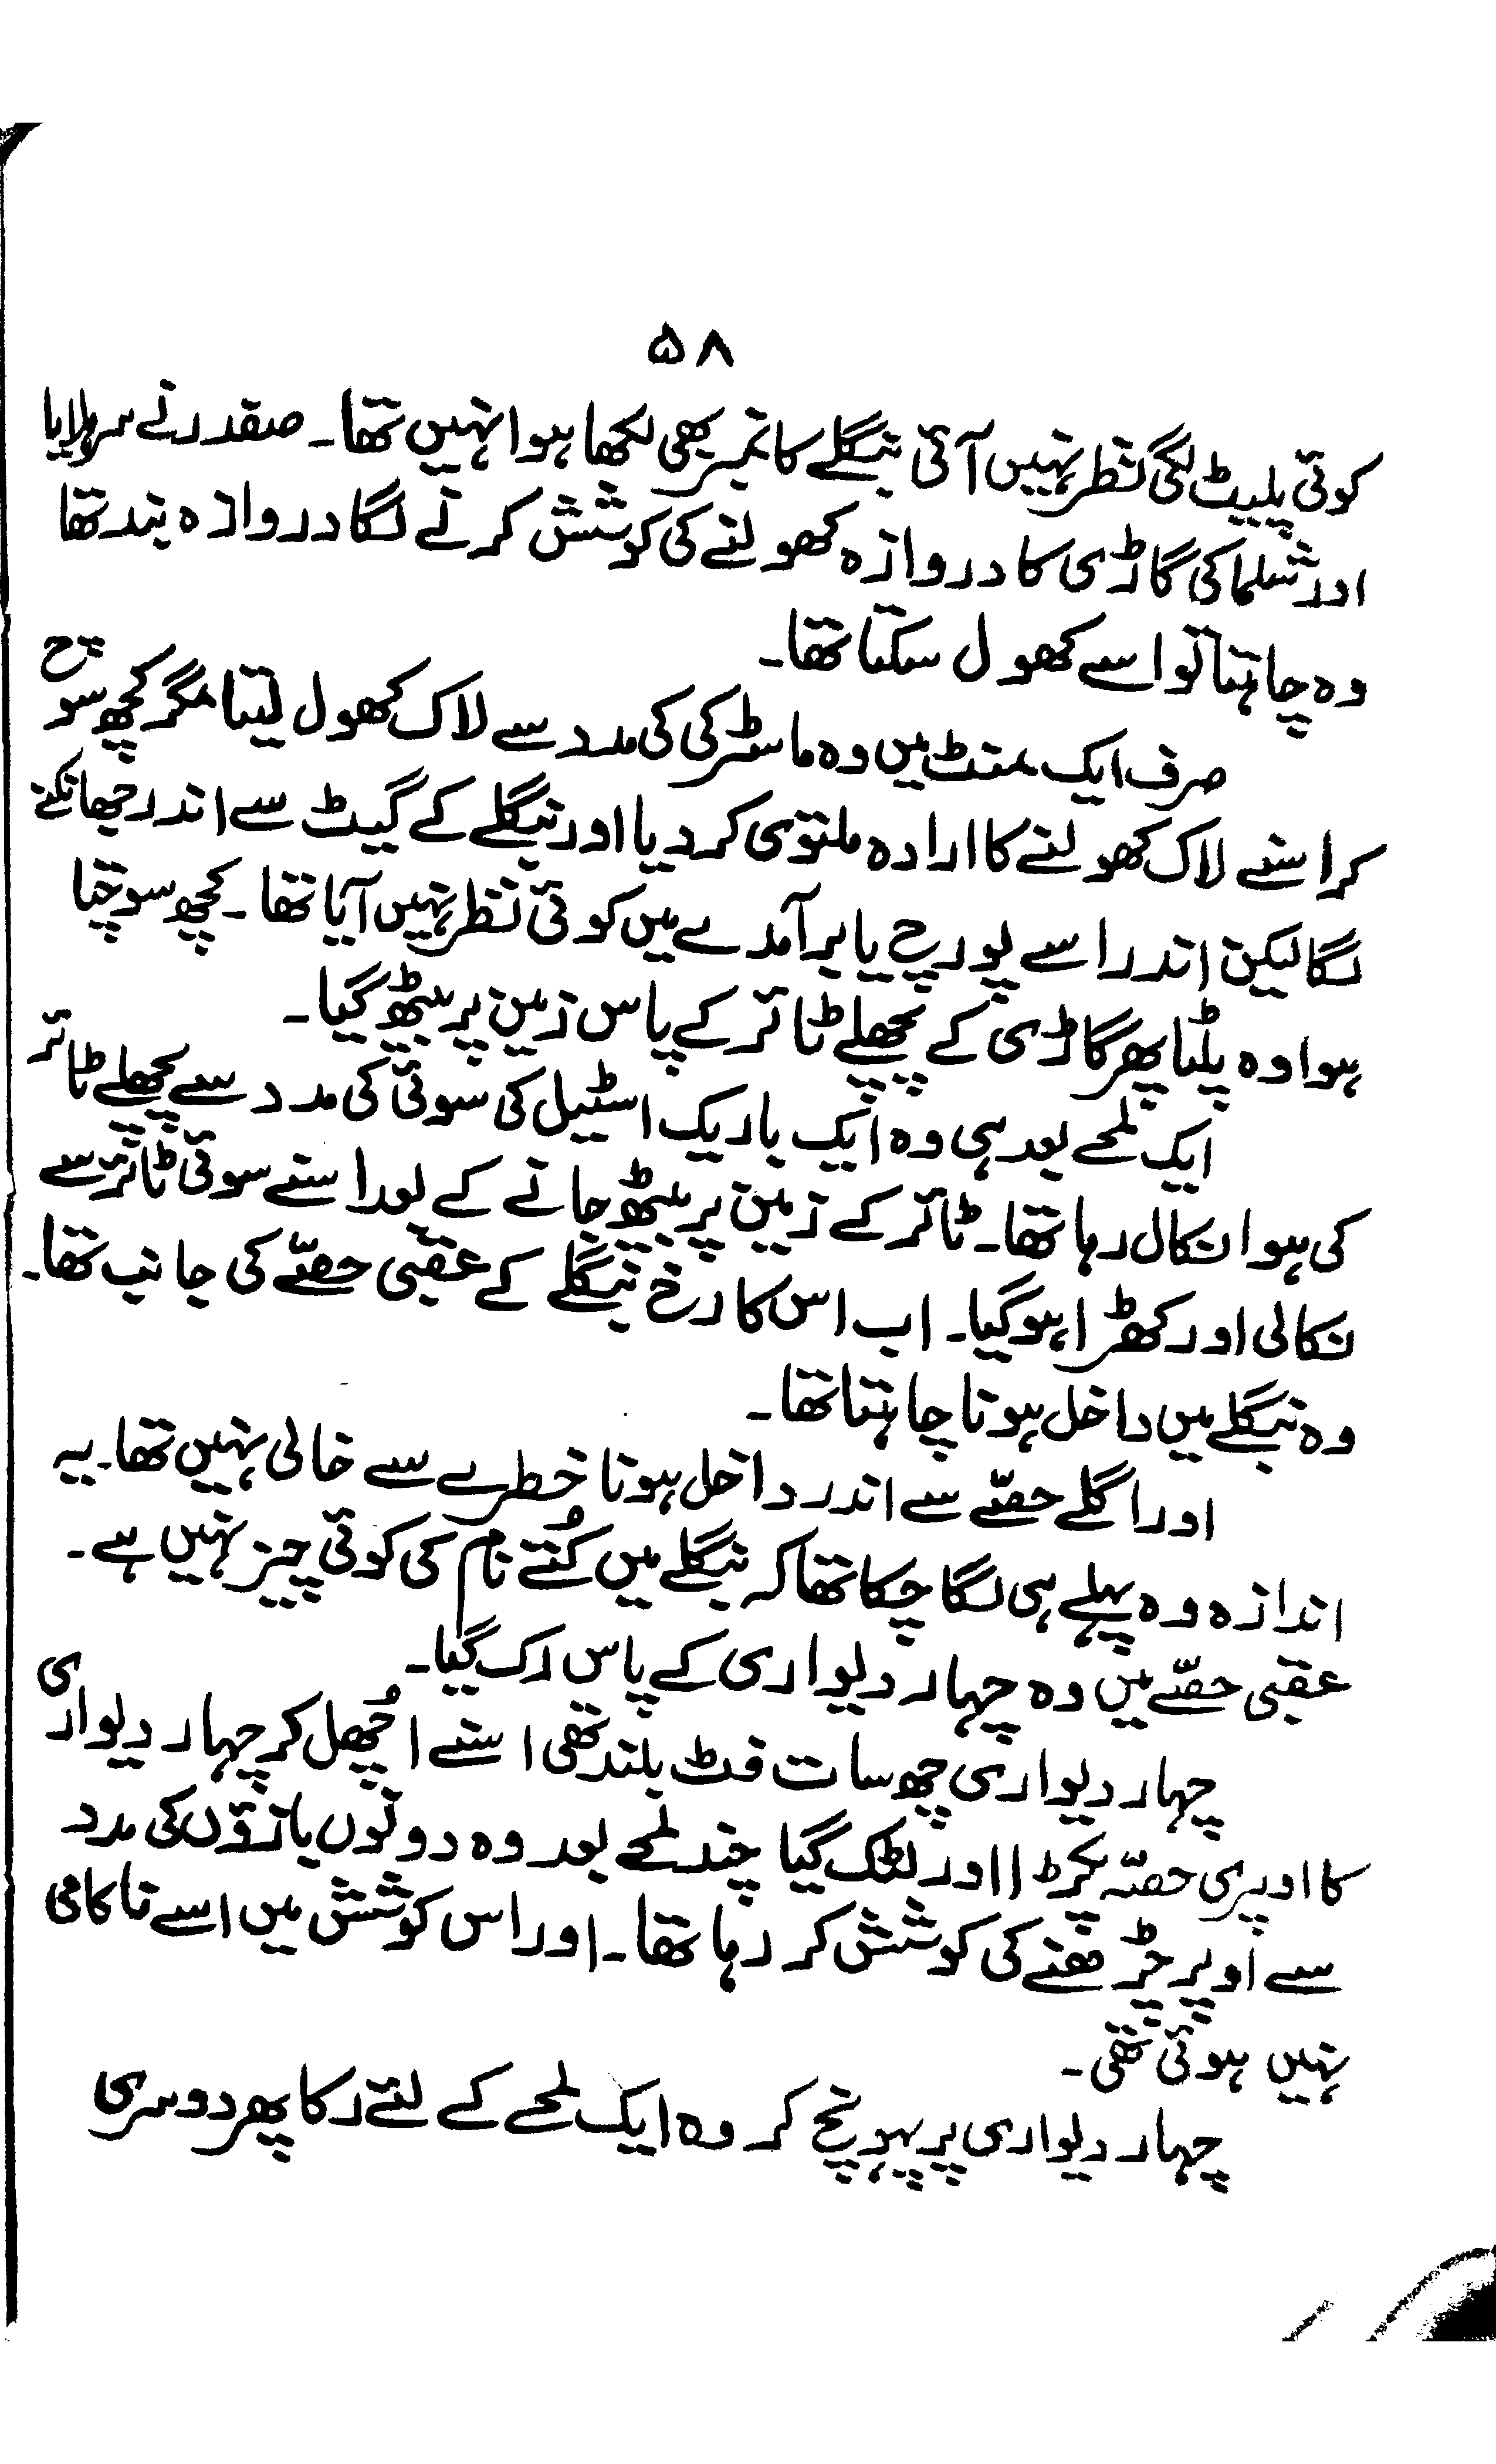 ۵۸
کوئی پلیٹ لگی نظر نہیں آئی بنگلے کا نمبر بھی لکھا ہوا نہیں تھا۔ صفدر نے سر ہلایا
اور شلما کی گاڑی کا دروازہ کھولنے کی کوشش کرنے لگا دروازہ بند تھا
وہ چاہتا تو اسے کھول سکتا تھا۔
صرف ایک منٹ میں وہ ماسٹر کی کی مدد سے لاک کھول لیتا مگر کچھ سوچ
کر اسنے لاک کھولنے کا ارادہ ملتوی کر دیا اور بنگلے کے گیٹ سے اندر جھانکنے
لگا لیکن اندر اسے پورچ یا برآمدے میں کوئی نظر نہیں آیا تھا۔ کچھ سوچتا
ہوا وہ پلٹا پھر گاڑی کے پچھلے ٹائر کے پاس زمین پر بیٹھ گیا۔
ایک لمحے بعد ہی وہ ایک باریک اسٹیل کی سوئی کی مدد سے پچھلے ٹائر
کی ہوا نکال رہا تھا۔ ٹائر کے زمین پر بیٹھ جانے کے بعد اسنے سوئی ٹائر سے
نکالی اور کھڑا ہو گیا۔ اب اس کا رخ بنگلے کے عقبی حصّے کی جانب تھا۔
وہ بنگلے میں داخل ہونا چاہتا تھا۔
اور اگلے حصّے سے اندر داخل ہونا خطرے سے خالی نہیں تھا۔ یہ
اندازہ وہ پہلے ہی لگا چکا تھا کہ بنگلے میں کُتے نام کی کوئی چیز نہیں ہے۔
عقبی حصّے میں وہ چہار دیواری کے پاس رک گیا۔
چہار دیواری چھ سات فٹ بلند تھی اسنے اُچھل کر چہار دیواری
کا اوپری حصّہ پکڑا اور لٹک گیا چند لمحے بعد وہ دونوں بازوؤں کی مدد
سے اوپر چڑھنے کی کوشش کر رہا تھا۔ اور اس کوشش میں اسے ناکامی
نہیں ہوئی تھی۔
چہار دیواری پر پہونچ کر وہ ایک لمحے کے لئے رکا پھر دوسری